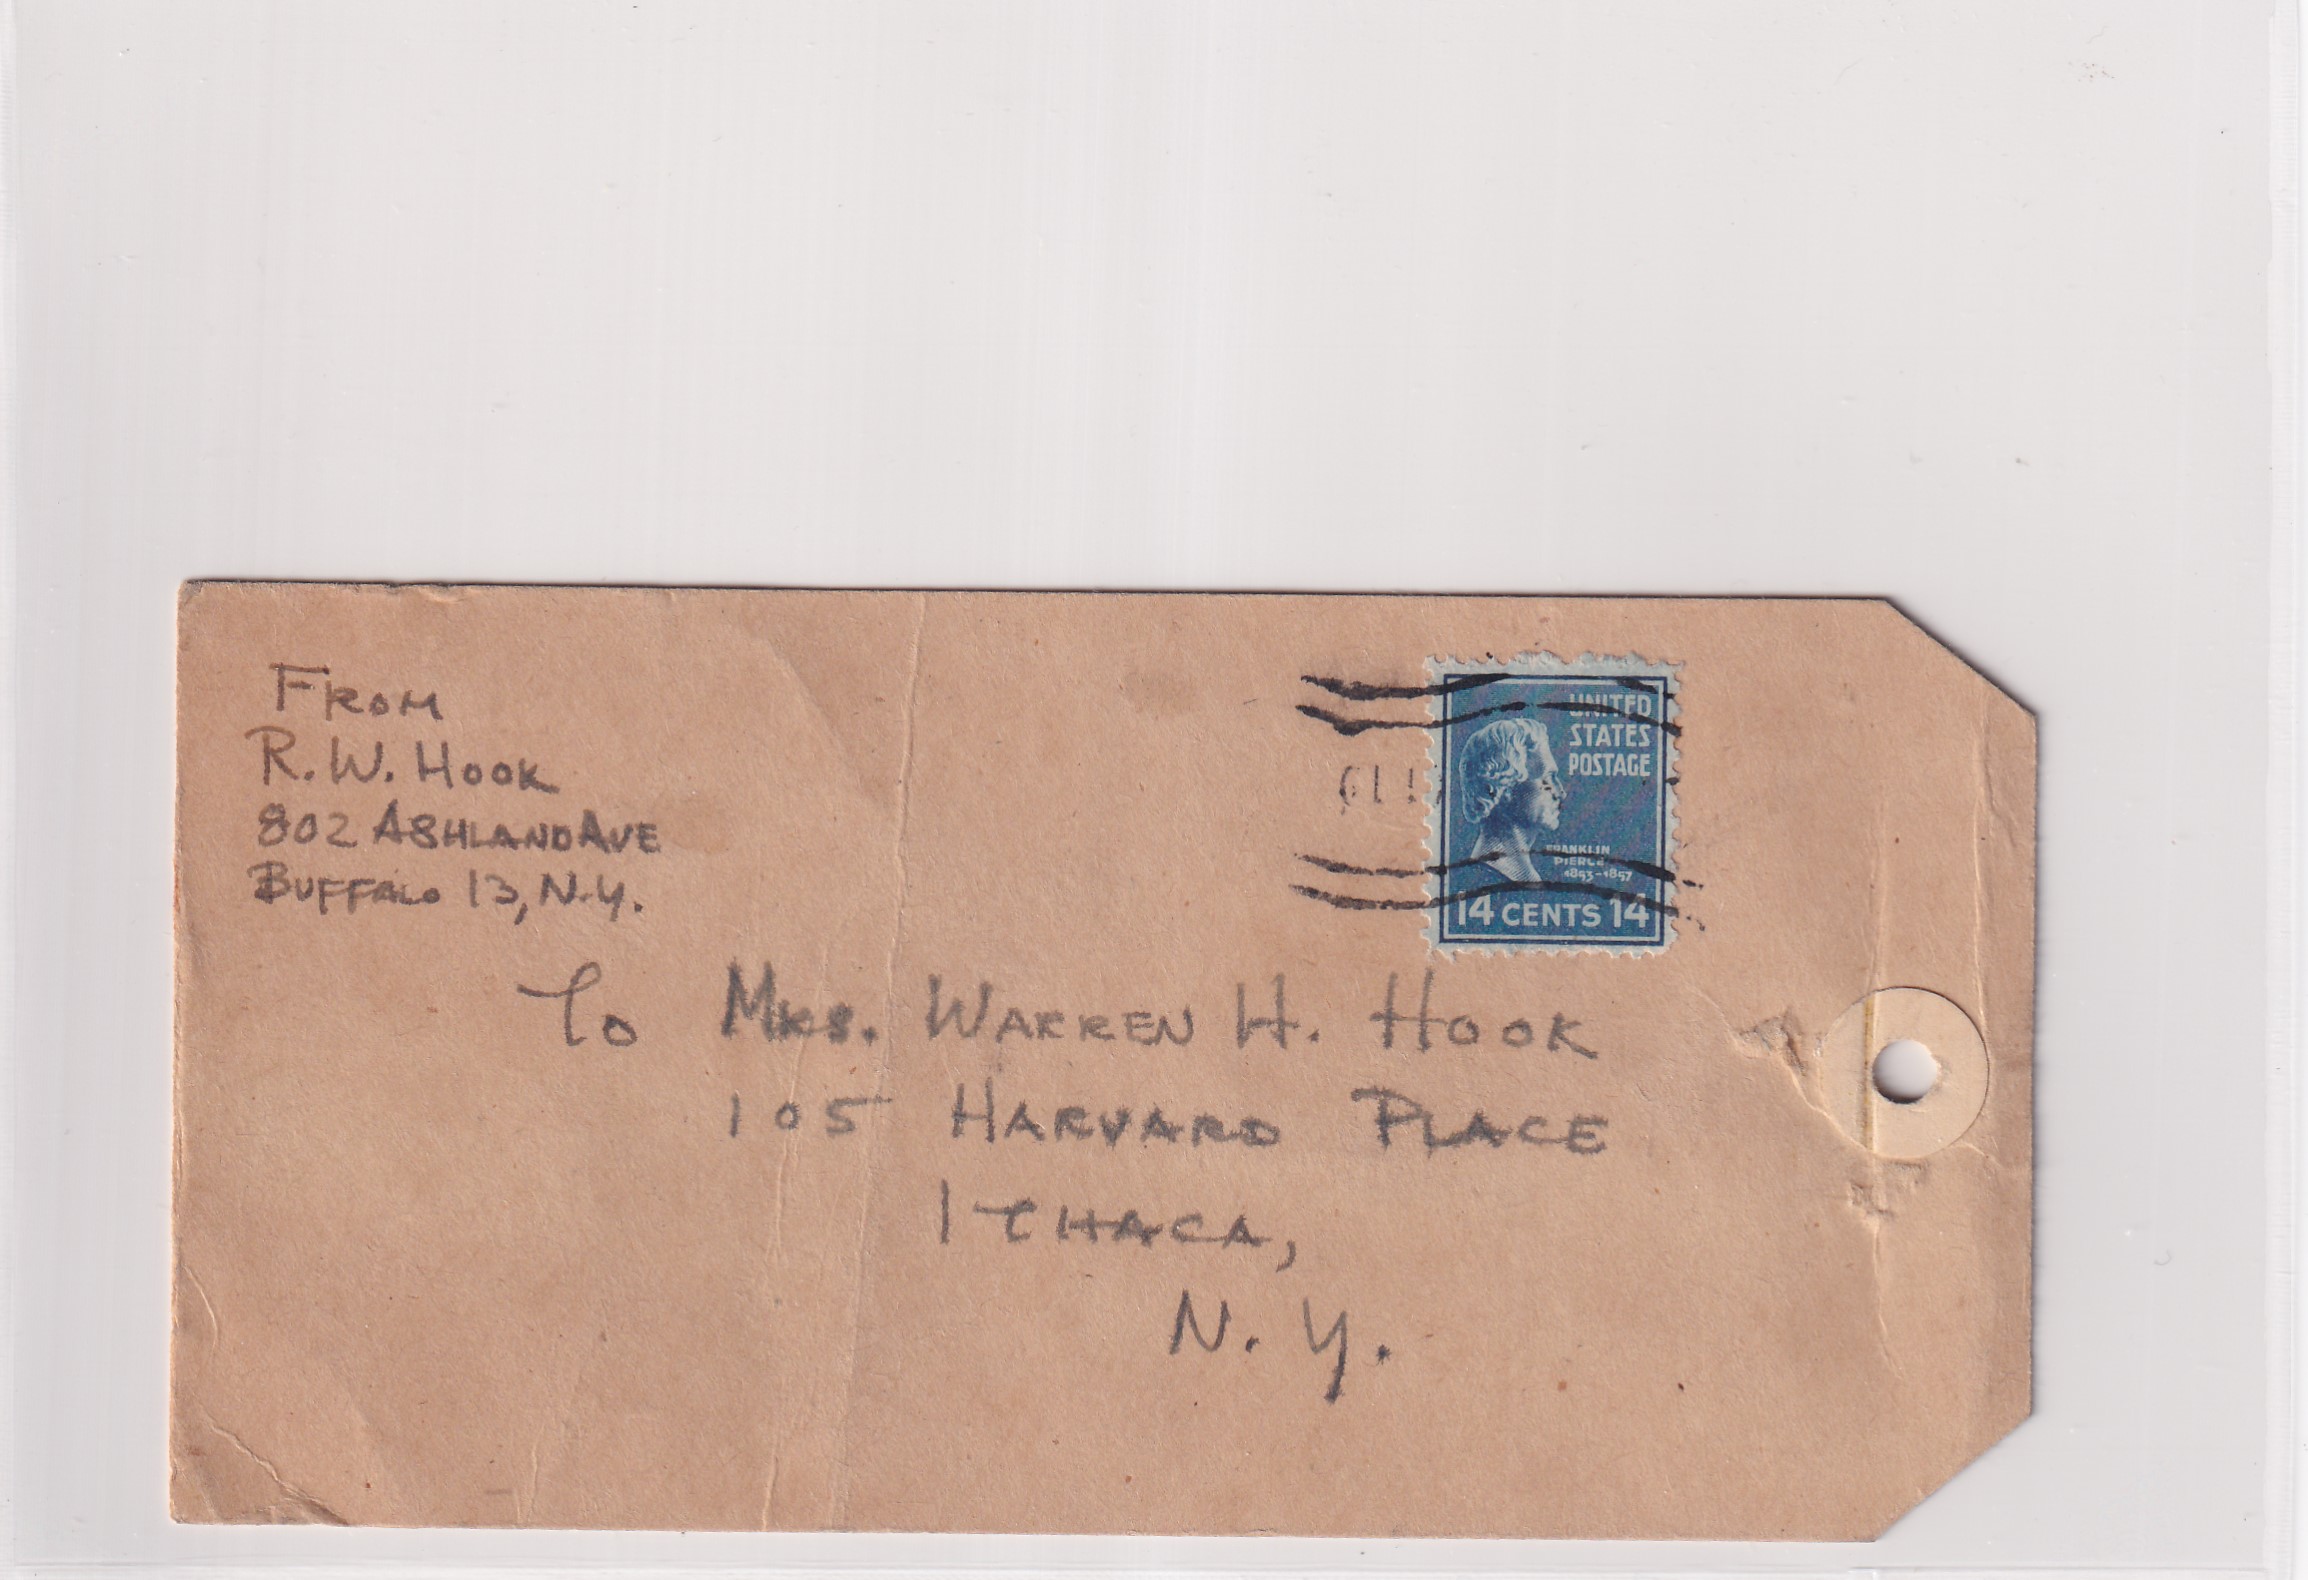 FROM
R. W. HOOK
802 ASHLAND AVE
BUFFALO 13, N.Y.
UNITED
STATES
POSTAGE
FRANKLIN
PIERCE
1853-1857
14 CENTS 14
To MRS. WARREN H. HOOK
105 HARVARD PLACE
ITHACA,
N. Y.